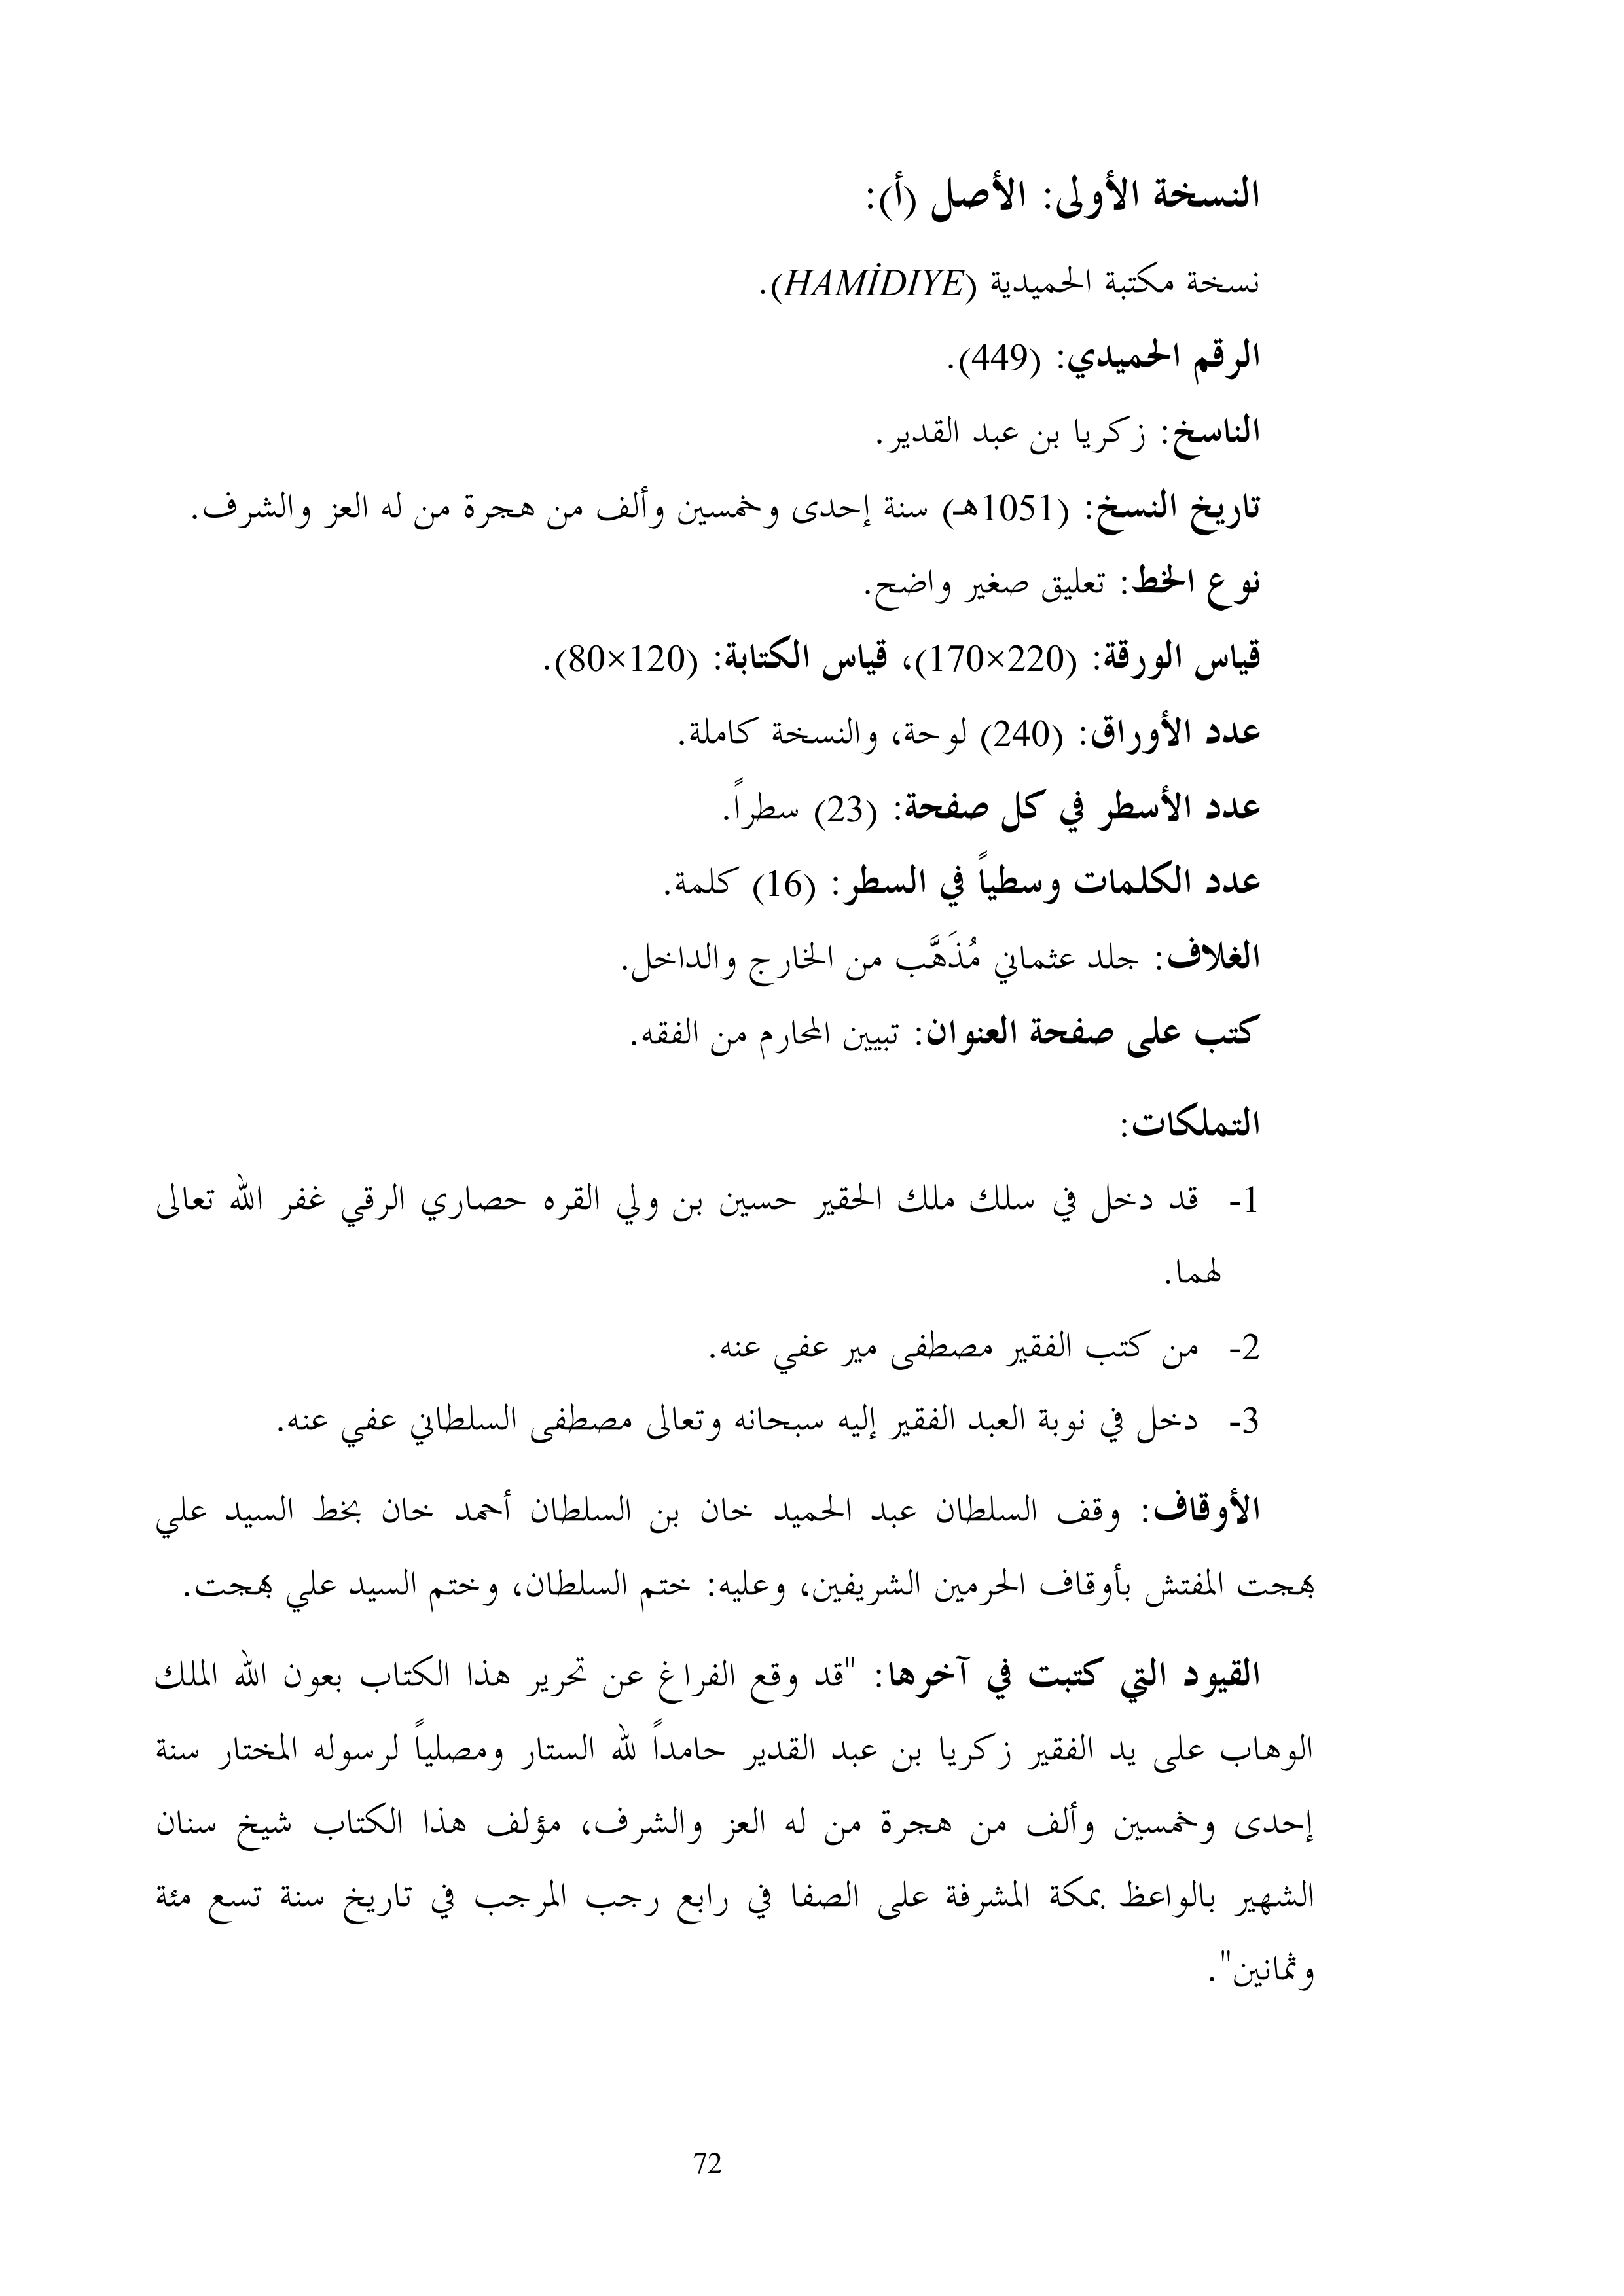 النسخة الأولى: الأصل (أ):
نسخة مكتبة الحميدية (HAMİDIYE).
الرقم الحميدي: (449).
الناسخ: زكريا بن عبد القدير.
تاريخ النسخ: (1051هـ) سنة إحدى وخمسين وألف من هجرة من له العز والشرف.
نوع الخط: تعليق صغير واضح.
قياس الورقة: (220×170)، قياس الكتابة: (120×80).
عدد الأوراق: (240) لوحة، والنسخة كاملة.
عدد الأسطر في كل صفحة: (23) سطراً.
عدد الكلمات وسطياً في السطر: (16) كلمة.
الغلاف: جلد عثماني مُذَهَّب من الخارج والداخل.
كتب على صفحة العنوان: تبيين المحارم من الفقه.
التملكات:
1- قد دخل في سلك ملك الحقير حسين بن ولي القره حصاري الرقي غفر الله تعالى
لهما.
2- من كتب الفقير مصطفى مير عفي عنه.
3- دخل في نوبة العبد الفقير إليه سبحانه وتعالى مصطفى السلطاني عفي عنه.
الأوقاف: وقف السلطان عبد الحميد خان بن السلطان أحمد خان بخط السيد علي
بهجت المفتش بأوقاف الحرمين الشريفين، وعليه: ختم السلطان، وختم السيد علي بهجت.
القيود التي كتبت في آخرها: "قد وقع الفراغ عن تحرير هذا الكتاب بعون الله الملك
الوهاب على يد الفقير زكريا بن عبد القدير حامداً لله الستار ومصلياً لرسوله المختار سنة
إحدى وخمسين وألف من هجرة من له العز والشرف، مؤلف هذا الكتاب شيخ سنان
الشهير بالواعظ بمكة المشرفة على الصفا في رابع رجب المرجب في تاريخ سنة تسع مئة
وثمانين".
72